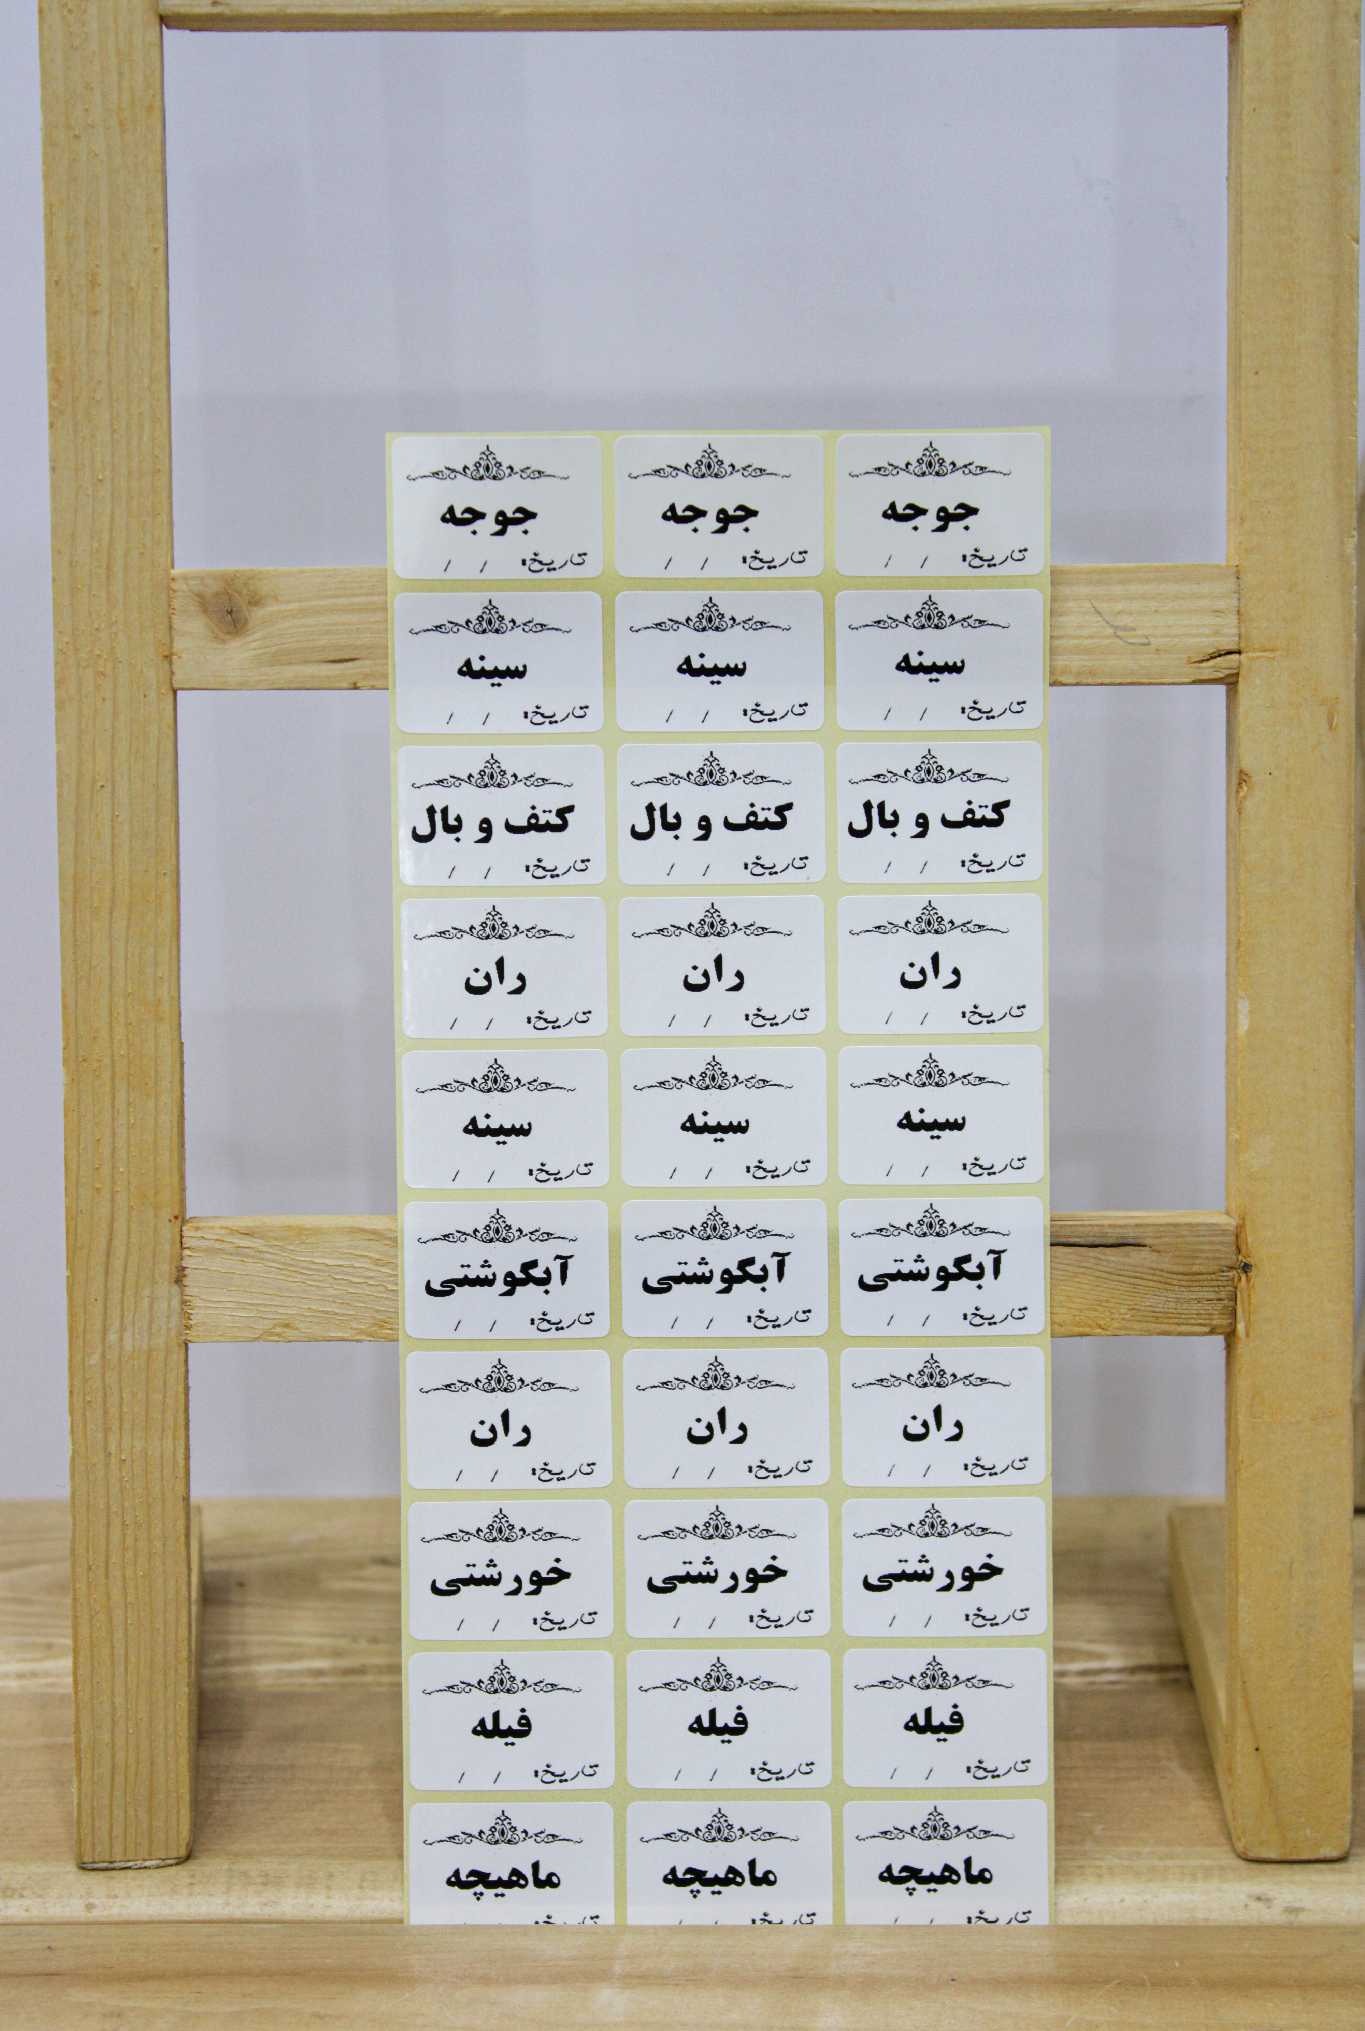 جوجه جوجه جوجه
تاریخ: / / تاریخ: / / تاریخ: / /
سینه سینه سینه
تاریخ: / / تاریخ: / / تاریخ: / /
کتف و بال کتف و بال کتف و بال
تاریخ: / / تاریخ: / / تاریخ: / /
ران ران ران
تاریخ: / / تاریخ: / / تاریخ: / /
سینه سینه سینه
تاریخ: / / تاریخ: / / تاریخ: / /
آبگوشتی آبگوشتی آبگوشتی
تاریخ: / / تاریخ: / / تاریخ: / /
ران ران ران
تاریخ: / / تاریخ: / / تاریخ: / /
خورشتی خورشتی خورشتی
تاریخ: / / تاریخ: / / تاریخ: / /
فیله فیله فیله
تاریخ: / / تاریخ: / / تاریخ: / /
ماهیچه ماهیچه ماهیچه
تاریخ: / / تاریخ: / / تاریخ: / /